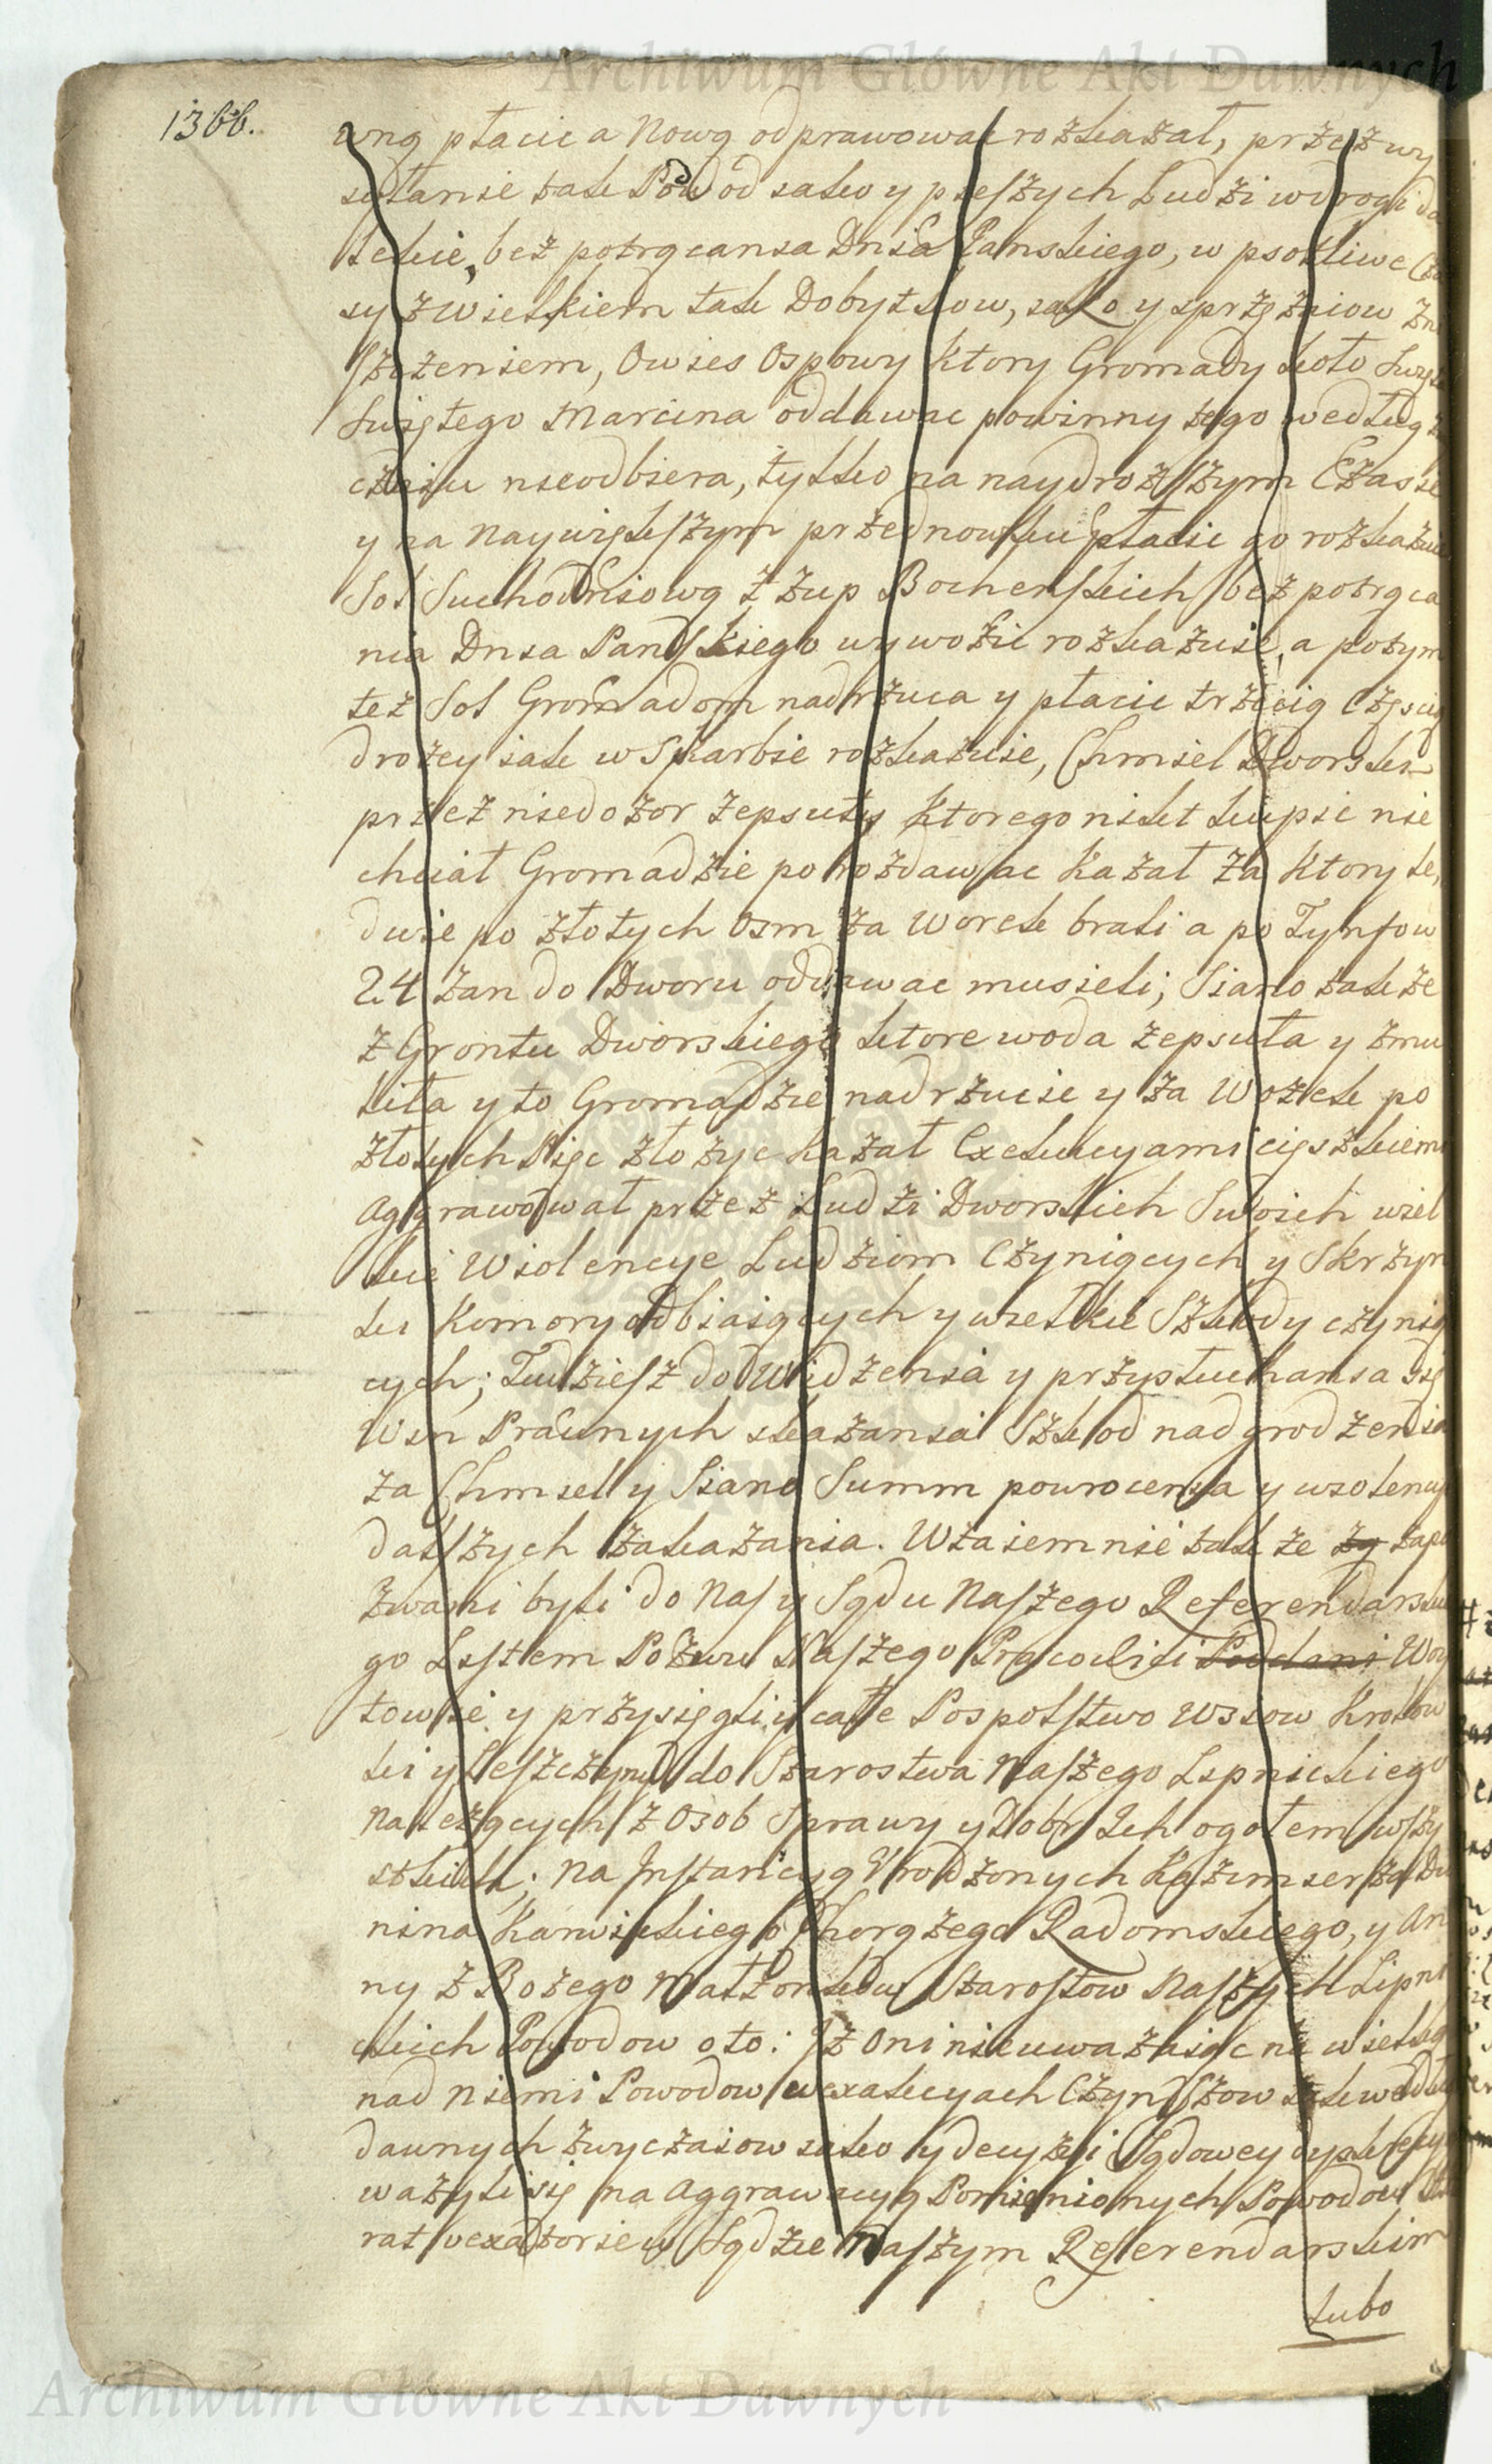 Archiwum Główne Akt Dawnych
1366.
wną płacic a Nową odprawowac rozkazał, przez wy
syłanie tak Podwod iako y pieszych Ludzi w drogi da
lekie, bez potrącania Dnia Panskiego, w psotliwe Cza
sy z wielkiem tak Dobytkow, iako y sprzężaiow Zni
szczeniem, Owies Ospowy ktory Gromady koło Swięta
Swiętego Marcina oddawac powinny tego według z
czaiu nieodbiera, tylko na naydroższym Czasie
y na Naywiększym przednowku płacic go rozkazuie
Sol Suchodniową z Zup Bochenskich bez potrąca
nia Dnia Panskiego wywozic rozkazuie, a potym
tez Sol Gromadom nadrzuca y płacic trzecią Częscią
drożey iak w Skarbie rozkazuie, Chmiel Dworski
przez niedozor zepsuty ktorego nikt kupic nie
chciał Gromadzie porozdawac kazał za ktory lu,
dzie po złotych Osm za Worek brali a po Tynfow
24 zan do Dworu oddawac musieli; Siano takze
z Grontu Dworskiego ktore woda zepsuła y zmu
liła y to Gromadzie nadrzucic y za Wozek po
złotych Pięc złożyc kazał Exekucyami cięszkiemi
Aggrawował przez Ludzi Dworskich Swoich wiel
kie Wiolencye Ludziom Czyniących y Skrzyn
ki Komory odbiaiących y wielkie Szkody czynią
cych; Tudziesz do Widzenia y przysłuchania się
Win Prawnych skazania Szkod nadgrodzenia
za Chmiel y Siano Summ powrocenia y wiolencyi
dalszych zakazania. Wzaiemnie takze zy zapo
zwani byli do Nas y Sądu Naszego Referendarskie
go Listem Pozwu Naszego Pracowici Poddani Woy
towie y przysięgli y całe Pospolstwo Wsiow Krolow
ki y Leszczyny do Starostwa Naszego Lipnickiego
Należących z Osob Sprawy y Dobr Ich ogołem wszy
stkich; Na Instancyą Urodzonych Kazimierza Du
nina Karwickiego Chorążego Radomskiego, y An
ny z Bożego Małżonkow Starostow Naszych Lipni
ckich Powodow oto: Iż Oni nieuważaiąc na wielką
nad niemi Powodow w exakcyach Czynszow tak według
dawnych zwyczaiow iako y decyzyi Sądowey dyskrecyą
ważyli się na Aggrawacyą Pomienionych Powodow
rat vexatorie w Sądzie Naszym Referendarskim
lubo
Archiwum Główne Akt Dawnych